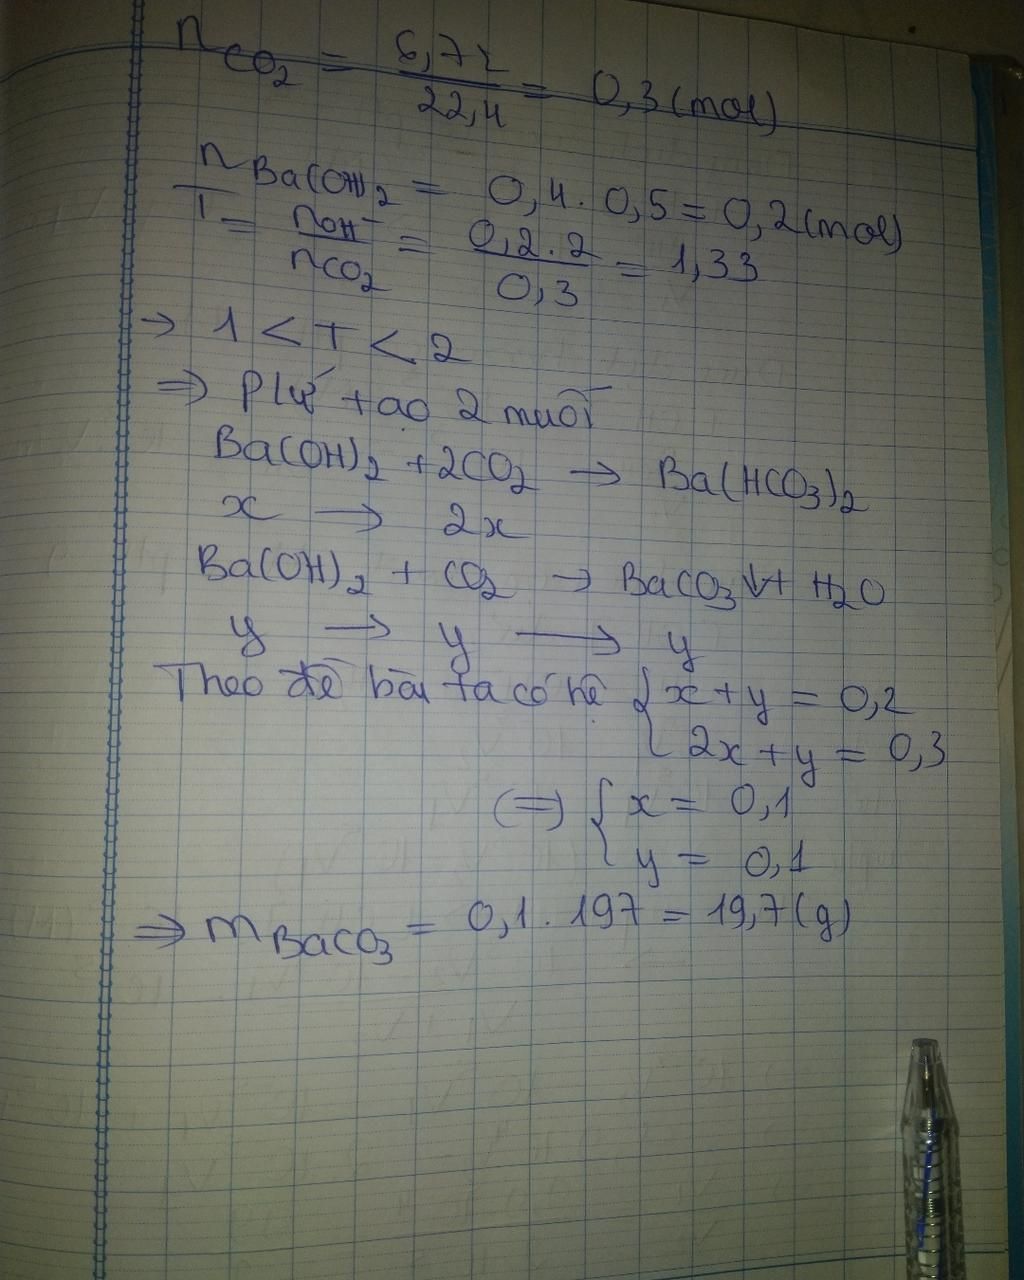 nCO₂ = 6,72/22,4 = 0,3 (mol)
nBa(OH)₂ = 0,4 . 0,5 = 0,2 (mol)
T = nOH⁻/nCO₂ = 0,2 . 2/0,3 = 1,33
→ 1 < T < 2
⇒ Pứ tạo 2 muối
Ba(OH)₂ + 2CO₂ → Ba(HCO₃)₂
x → 2x
Ba(OH)₂ + CO₂ → BaCO₃↓ + H₂O
y → y → y
Theo đề bài ta có hệ { x + y = 0,2
2x + y = 0,3
(=) { x = 0,1
y = 0,1
⇒ mBaCO₃ = 0,1 . 197 = 19,7 (g)